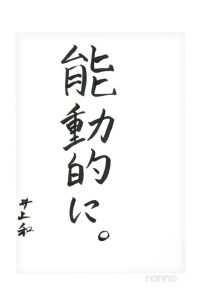 能動的に。
井上和